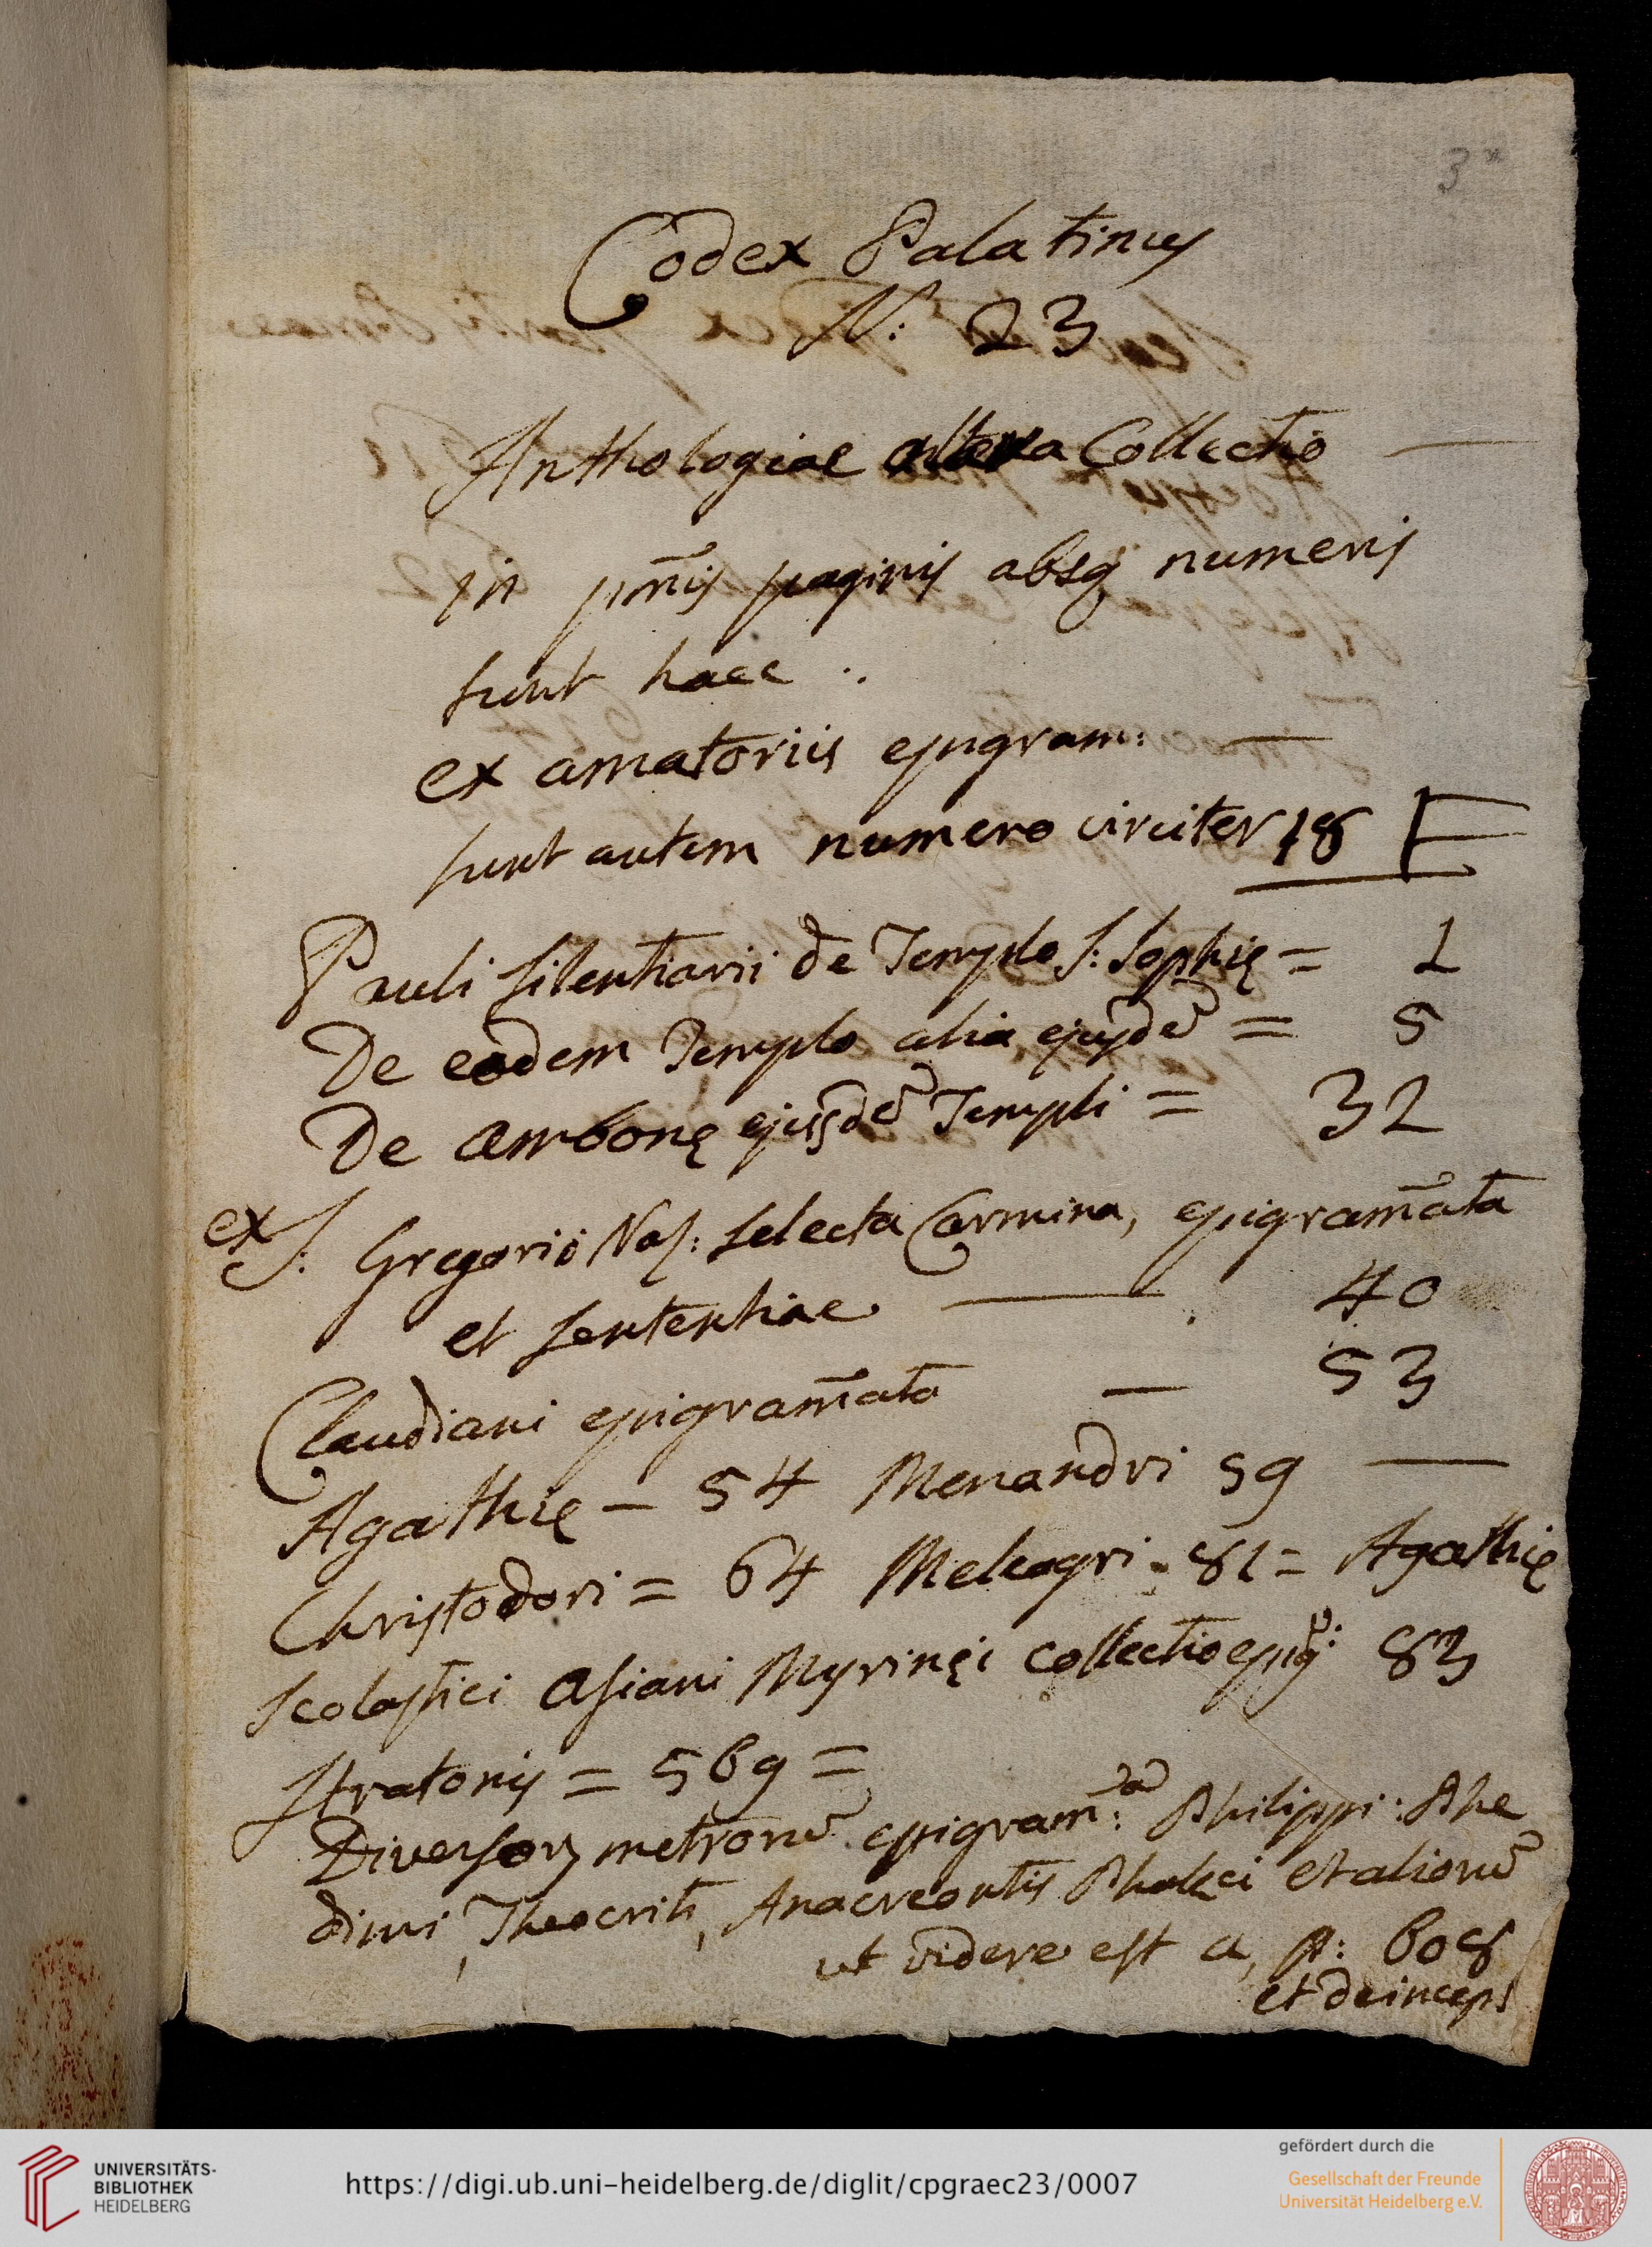 3*
Codex Palatinus
N: 23
Anthologiae altera Collectio
in pr̃nis paginis absq numeris
sunt haec :.
ex amatoriis epigram: —
sunt autem numero circiter 18
Pauli silentiarii de Templo S: Sophię = 1
De eodem Templo alia ejusdẽ = 5
De ambonę ejusdẽ Templi = 32
ex S: Gregorio Naz: selecta Carmina, epigram̃ata
et sententiae — 40
Claudiani epigram̃ata — 53
Agathię — 54 Menandri 59 —
Christodori = 64 Meleagri = 81 = Agathię
scolastici asiani Myrinęi collectio epigr: 83
Stratonis = 569 =
Diversorꝝ metrorũ epigram:ta Philippi: Phe
dimi, Theocriti, Anacreontis Phalęci et aliorũ
ut videre est a p: 608
et deinceps
UNIVERSITÄTS-
BIBLIOTHEK
HEIDELBERG
https://digi.ub.uni-heidelberg.de/diglit/cpgraec23/0007
gefördert durch die
Gesellschaft der Freunde
Universität Heidelberg e.V.